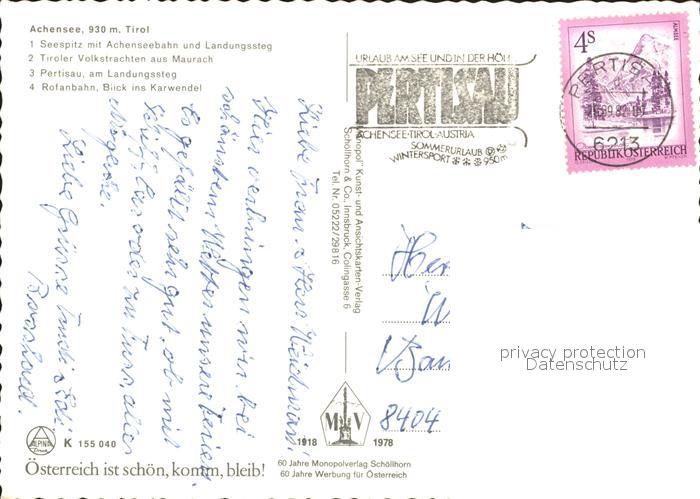 Achensee, 930 m. Tirol
1 Seespitz mit Achenseebahn und Landungssteg
2 Tiroler Volkstrachten aus Maurach
3 Pertisau, am Landungssteg
4 Rofanbahn, Blick ins Karwendel
Liebe Frau u. Herr
Hier verbringen wir bei
schönstem Wetter unsere Ferien.
Es gefällt sehr gut, ob mit
Schiff, Bus oder zu Fuss, alles
Liebe Grüsse
K 155 040
Österreich ist schön, komm, bleib!
"Monopol" Kunst- und Ansichtskarten-Verlag
Schöllhorn & Co., Innsbruck, Colingasse 6
Tel. Nr. 05222/29816
MV
1918 1978
60 Jahre Monopolverlag Schöllhorn
60 Jahre Werbung für Österreich
URLAUB AM SEE UND IN DER HÖH
PERTISAU
ACHENSEE-TIROL-AUSTRIA
SOMMERURLAUB
WINTERSPORT 950m
4s
ALMSEE
PERTISAU
6213
REPUBLIK ÖSTERREICH
Her
8404
privacy protection
Datenschutz